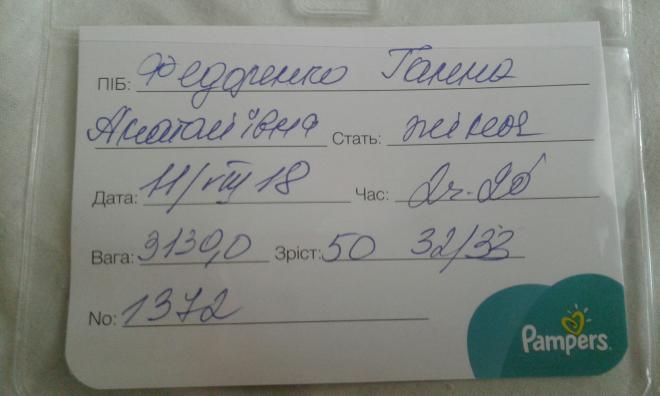 ПІБ: Федоренко Ганна
Анатоліївна Стать: жіноч
Дата: 11/VIII 18 Час: 2ч-20'
Вага: 3130,0 Зріст: 50 32/33
No: 1372
Pampers.